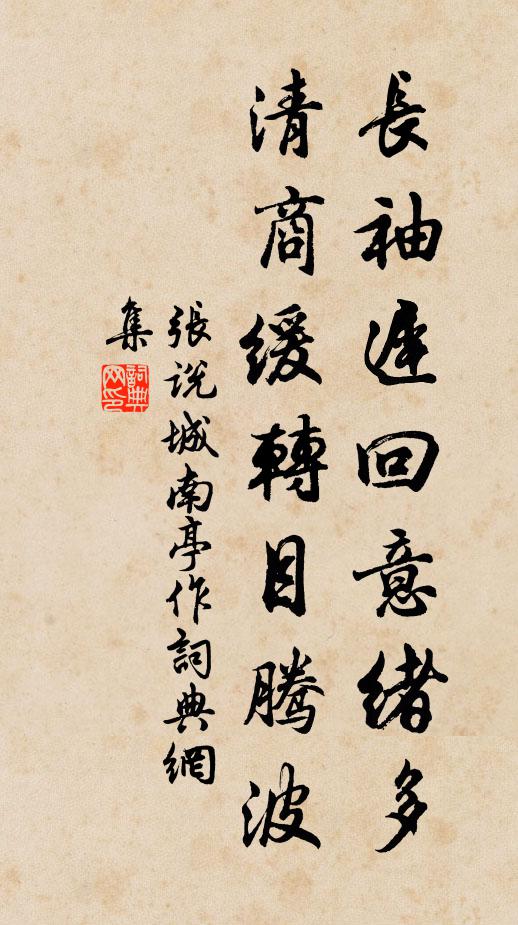 長袖遲回意緒多
清商緩轉目騰波
張說城南亭作詞典網
集
詞典網印